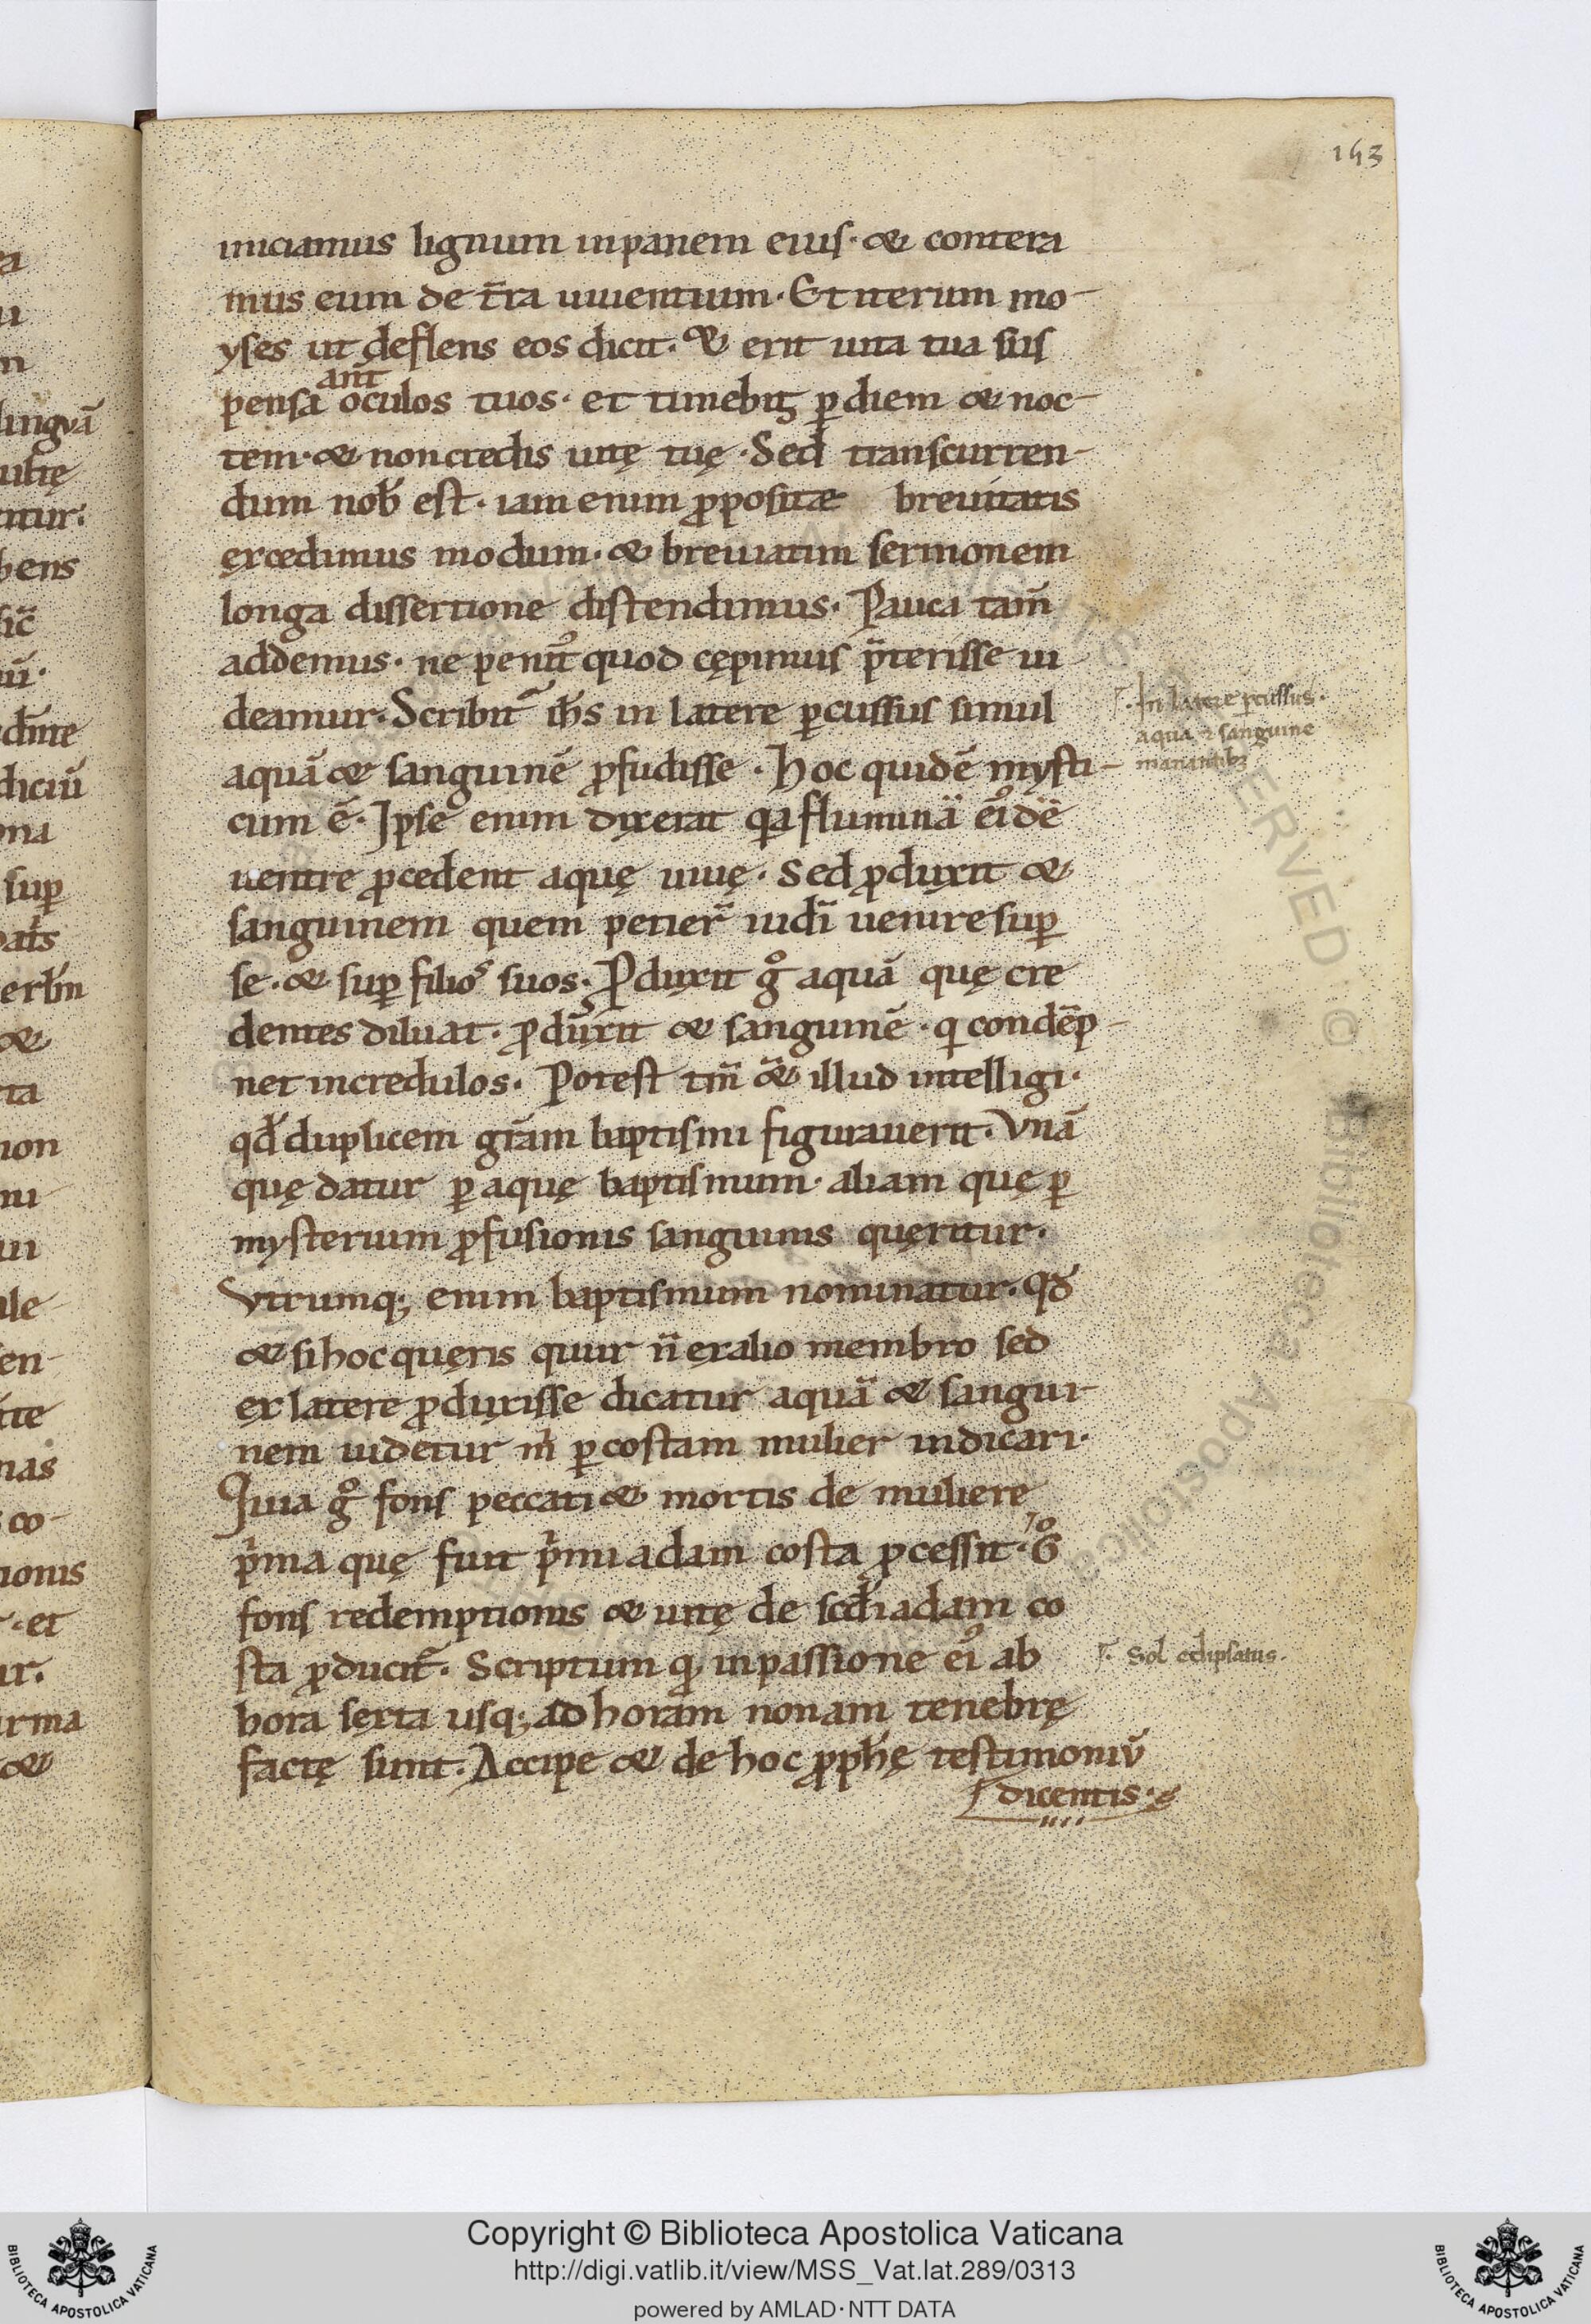 143
iniciamus lignum inpanem eius· & contera
mus eum de t̄ra uiuentium· Et iterum mo-
yses ut deflens eos dicit· & erit uita tua sus
ant̄
pensa oculos tuos· et timebis p̱ diem & noc-
tem· & non credis uitę tuę· Sed transcurren-
dum nob̄ est· iam enim ꝓpositæ breuitatis
excedimus modum· & breuiatim sermonem
longa dissertione distendimus· Pauca tam̄
addemus· ne penitꝰ quod cępimus p̄terisse ui
deamur· Scribit̄ ih̄s in latere ꝑcussus simul
aquā & sanguinē ꝓfudisse· Hoc quidē mysti-
cum ē· Ipse enim dixerat qa flumina eiꝰ de
uentre ꝓcedent aquę uiuę· Sed ꝓduxit &
sanguinem quem petier̄ iudi uenire sup̱
se· & sup̱ filios suos· Produxit gͦ aquā quę cre
dentes diluat· ꝓduxit & sanguinē· qi condēp-
net incredulos· Potest tm̄ & illud intelligi·
qd̄ duplicem gr̄am baptismi figurauerit· Vnā
quę datur ꝑ aquę baptismum· aliam quę ꝑ
mysterium ꝓfusionis sanguinis quęritur·
Vtrumq; enim baptismum nominatur· Qd̄
& si hoc quęris quur n̄ ex alio membro sed
ex latere ꝓduxisse dicatur aquā & sangui-
nem uidetur m̄ ꝑ costam mulier indicari·
Quia gͦ fons peccati & mortis de muliere
pͥma quę fuit pͥmi adam costa ꝓcessit·
fons redemptionis & uitę de scd̄i adam co
sta ꝓducit̄· Scriptum q̄ in passione eiꝰ ab
hora sexta usq; ad horam nonam tenebrę
factę sunt· Accipe & de hoc ꝓph̄ę testimoniū
dicentis·
In latere ꝑcussus·
aqua & sanguine
manantib;
Sol eclipsatus·
Copyright © Biblioteca Apostolica Vaticana
http://digi.vatlib.it/view/MSS_Vat.lat.289/0313
powered by AMLAD·NTT DATA
BIBLIOTECA APOSTOLICA VATICANA
BIBLIOTECA APOSTOLICA VATICANA